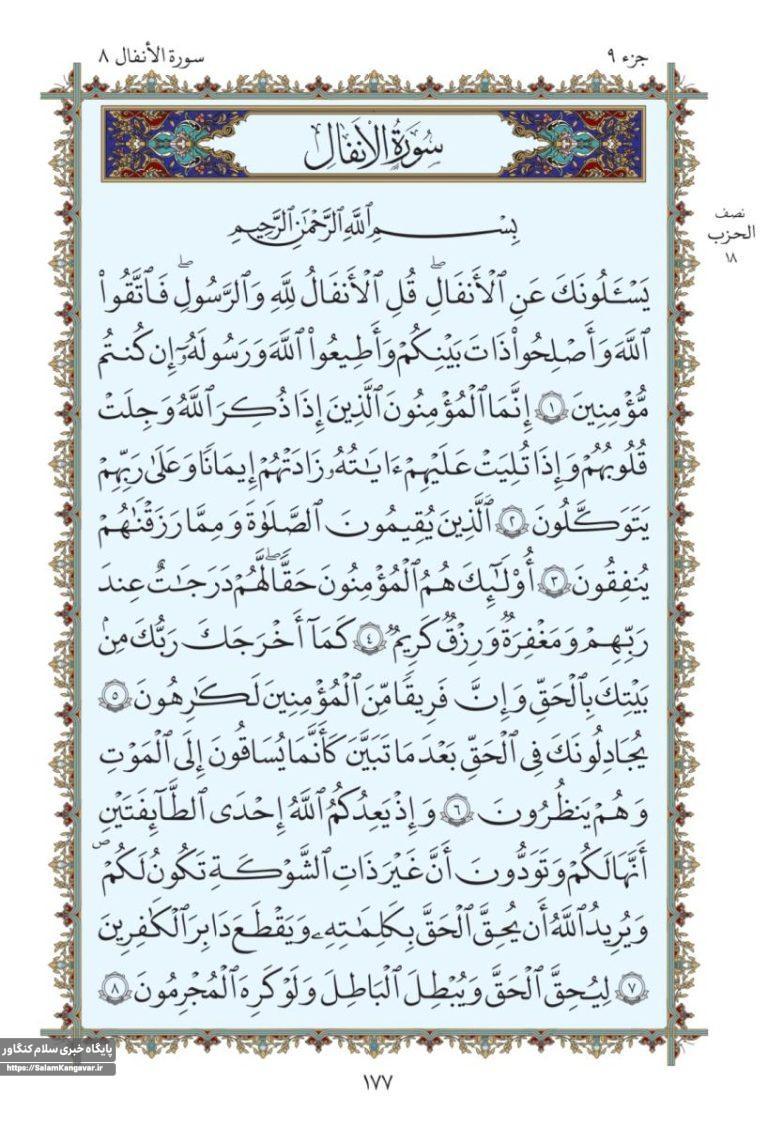 جزء ۹
سورة الأنفال ۸
سُورَةُ الأَنفَال
نصف
الحزب
۱۸
بِسْمِ ٱللَّهِ ٱلرَّحْمَٰنِ ٱلرَّحِيمِ
يَسْـَٔلُونَكَ عَنِ ٱلْأَنفَالِ ۖ قُلِ ٱلْأَنفَالُ لِلَّهِ وَٱلرَّسُولِ ۖ فَٱتَّقُوا۟
ٱللَّهَ وَأَصْلِحُوا۟ ذَاتَ بَيْنِكُمْ وَأَطِيعُوا۟ ٱللَّهَ وَرَسُولَهُۥٓ إِن كُنتُم
مُّؤْمِنِينَ ﴿۱﴾ إِنَّمَا ٱلْمُؤْمِنُونَ ٱلَّذِينَ إِذَا ذُكِرَ ٱللَّهُ وَجِلَتْ
قُلُوبُهُمْ وَإِذَا تُلِيَتْ عَلَيْهِمْ ءَايَـٰتُهُۥ زَادَتْهُمْ إِيمَانًا وَعَلَىٰ رَبِّهِمْ
يَتَوَكَّلُونَ ﴿۲﴾ ٱلَّذِينَ يُقِيمُونَ ٱلصَّلَوٰةَ وَمِمَّا رَزَقْنَـٰهُمْ
يُنفِقُونَ ﴿۳﴾ أُو۟لَـٰٓئِكَ هُمُ ٱلْمُؤْمِنُونَ حَقًّا ۚ لَّهُمْ دَرَجَـٰتٌ عِندَ
رَبِّهِمْ وَمَغْفِرَةٌ وَرِزْقٌ كَرِيمٌ ﴿٤﴾ كَمَآ أَخْرَجَكَ رَبُّكَ مِنۢ
بَيْتِكَ بِٱلْحَقِّ وَإِنَّ فَرِيقًا مِّنَ ٱلْمُؤْمِنِينَ لَكَـٰرِهُونَ ﴿۵﴾
يُجَـٰدِلُونَكَ فِى ٱلْحَقِّ بَعْدَ مَا تَبَيَّنَ كَأَنَّمَا يُسَاقُونَ إِلَى ٱلْمَوْتِ
وَهُمْ يَنظُرُونَ ﴿٦﴾ وَإِذْ يَعِدُكُمُ ٱللَّهُ إِحْدَى ٱلطَّآئِفَتَيْنِ
أَنَّهَا لَكُمْ وَتَوَدُّونَ أَنَّ غَيْرَ ذَاتِ ٱلشَّوْكَةِ تَكُونُ لَكُمْ ۖ
وَيُرِيدُ ٱللَّهُ أَن يُحِقَّ ٱلْحَقَّ بِكَلِمَـٰتِهِۦ وَيَقْطَعَ دَابِرَ ٱلْكَـٰفِرِينَ
﴿۷﴾ لِيُحِقَّ ٱلْحَقَّ وَيُبْطِلَ ٱلْبَـٰطِلَ وَلَوْ كَرِهَ ٱلْمُجْرِمُونَ ﴿۸﴾
پایگاه خبری سلام کنگاور
https://SalamKangavar.ir
۱۷۷